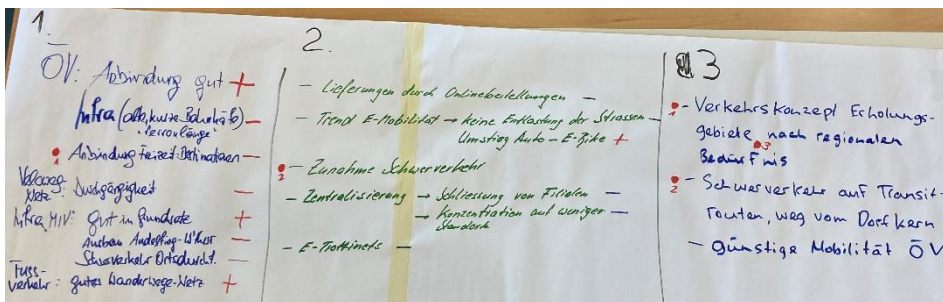 1.
ÖV: Anbindung gut +
Infra (alte, kurze Bahnhöfe) –
Perronlänge
1 Anbindung Freizeit-Destinationen –
Veloweg-
Netz: Durchgängigkeit –
Infra MIV: gut im Grundsatz +
Ausbau Andelfing-W'thur –
Schwerverkehr Ortsdurchf. –
Fuss-
verkehr: gutes Wanderwege-Netz +
2.
– Lieferungen durch Onlinebestellungen –
– Trend E-Mobilität → keine Entlastung der Strassen –
Umstieg Auto – E-Bike +
2 – Zunahme Schwerverkehr
– Zentralisierung → Schliessung von Filialen –
→ Konzentration auf weniger –
Standorte
– E-Trottinets –
3
1 – Verkehrskonzept Erholungs-
gebiete nach regionalen
Bedürfnis 3
2 – Schwerverkehr auf Transit
routen, weg vom Dorfkern
– günstige Mobilität ÖV